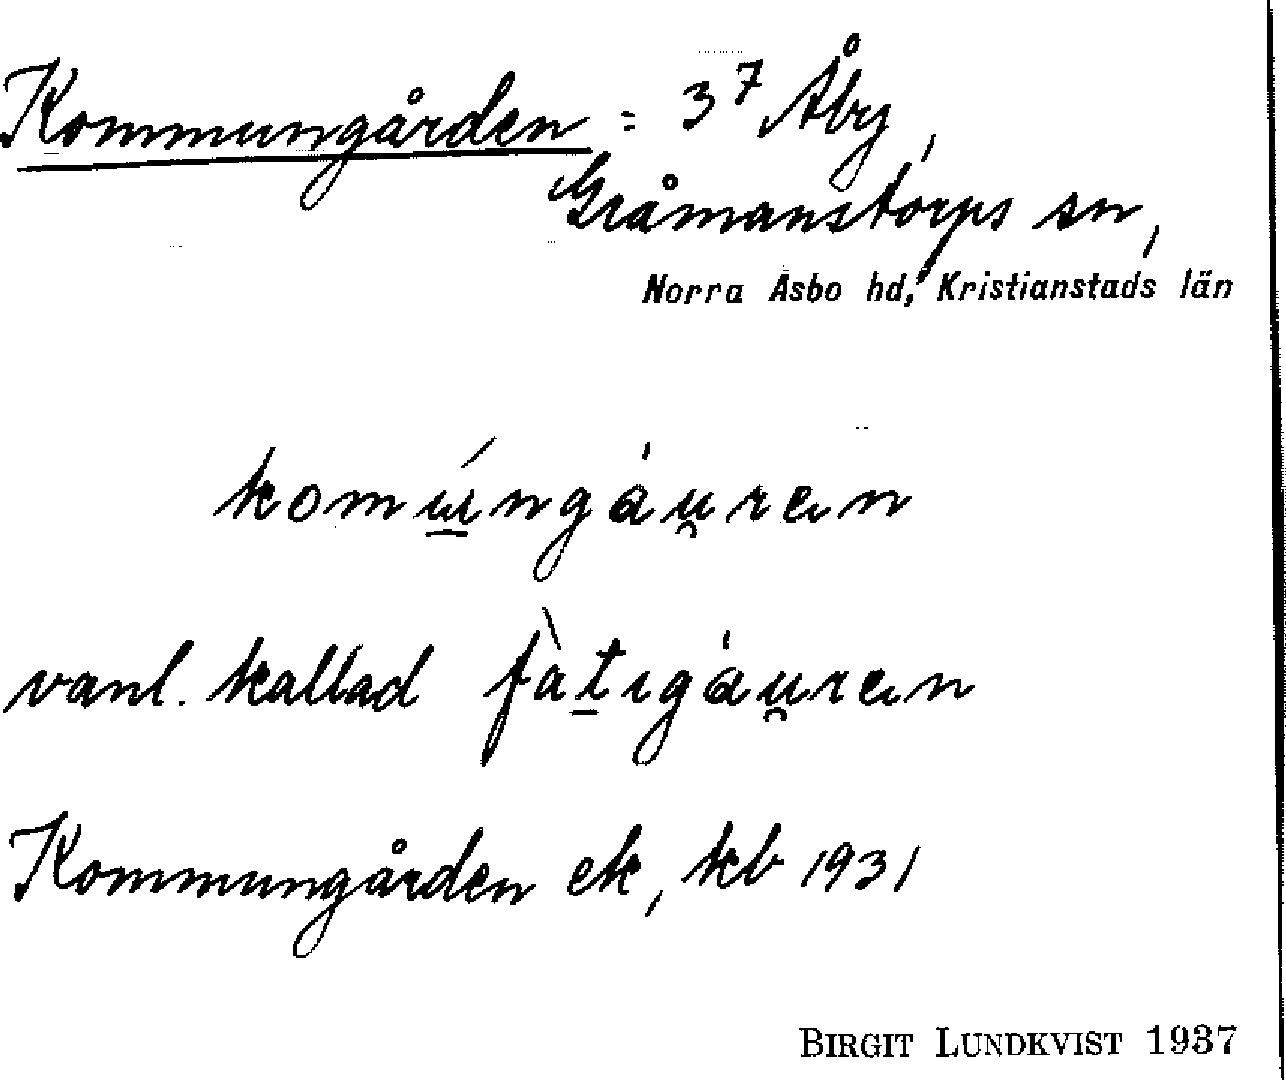 Kommungården = 3⁷ Åby,
Gråmanstorps sn,
Norra Åsbo hd, Kristianstads län
komɯ̱́ngȧu̯rɐn
vanl. kallad fàṯıgȧu̯rɐn
Kommungården ek, kb 1931
BIRGIT LUNDKVIST 1937